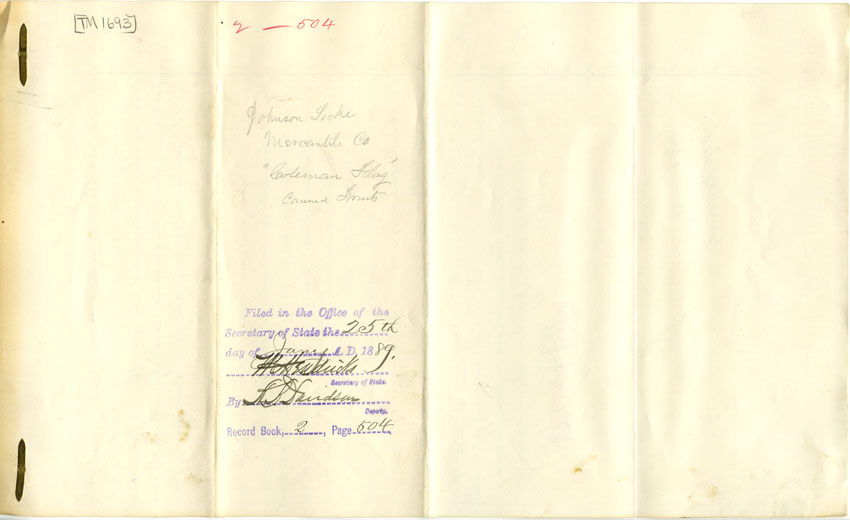 [TM 1693]
2 — 504
Johnson Locke
Mercantile Co
"Coleman Flag"
Canned Fruits
Filed in the Office of the
Secretary of State the 25th
day of Jany A.D. 1889.
W C Hendricks
Secretary of State.
By Davidson
Deputy.
Record Book, 2, Page 504